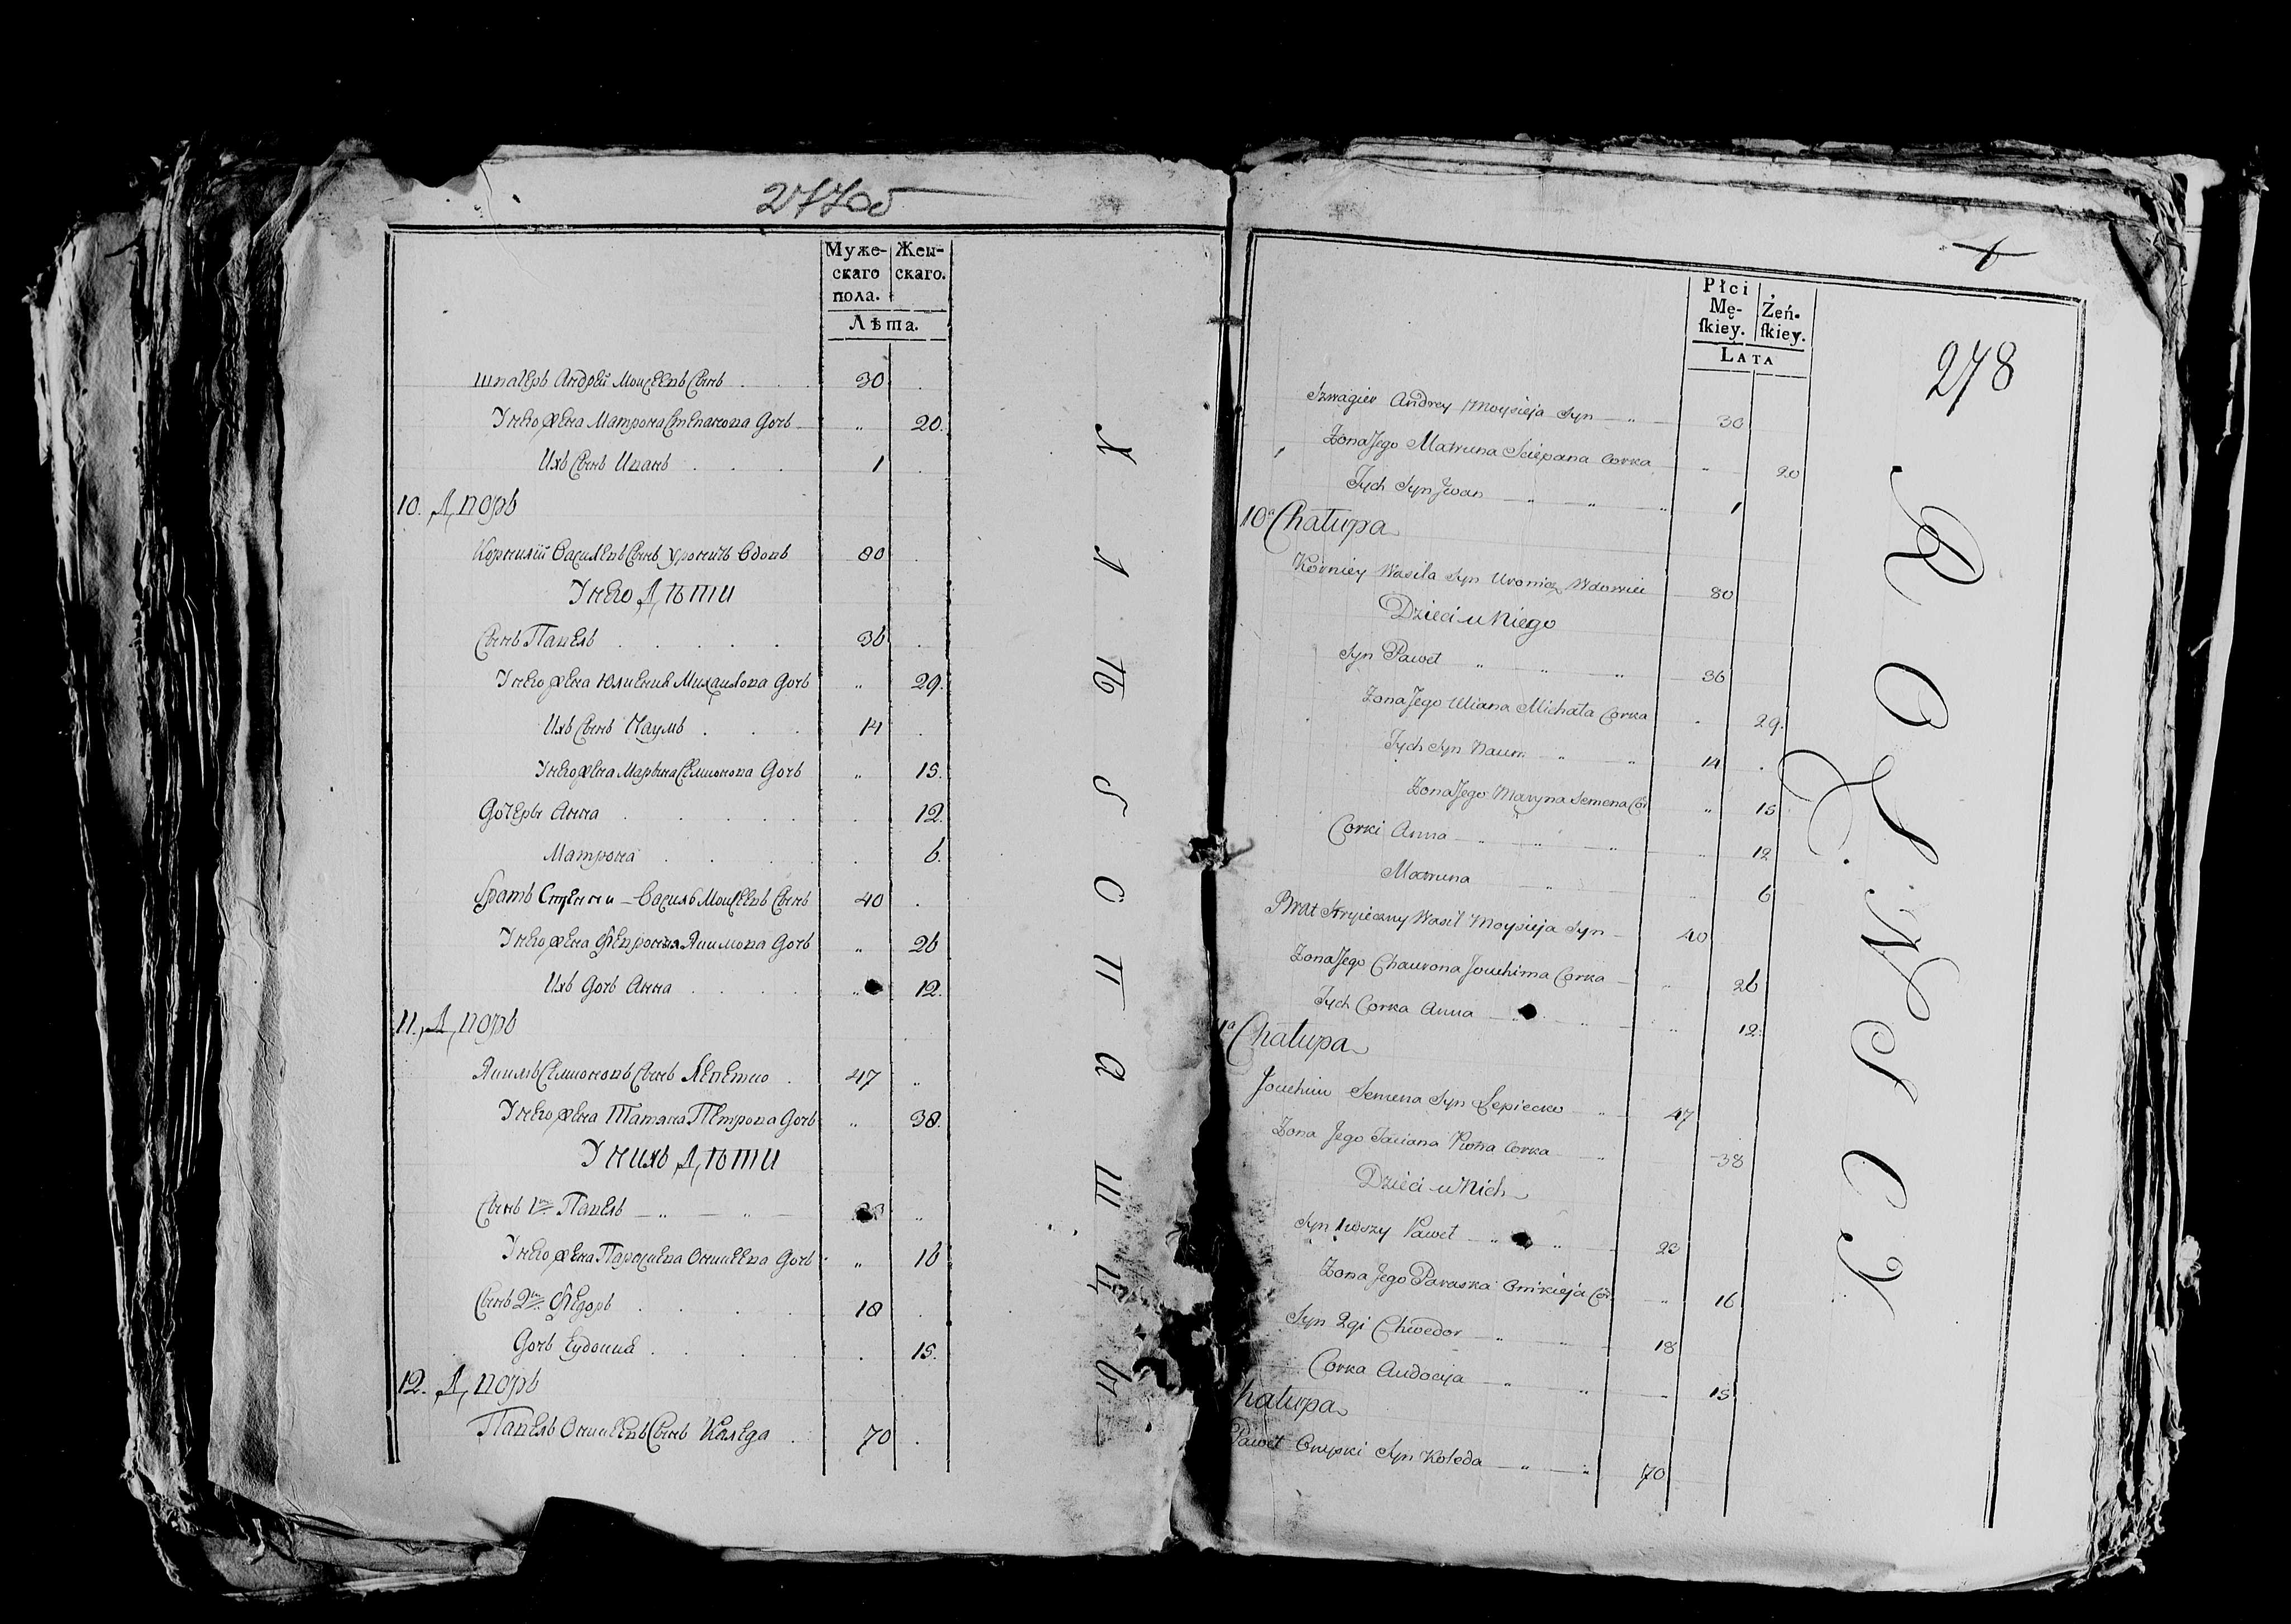 277об
Муже-
скаго
пола.
Жен-
скаго.
Лѣта.
Шваґеръ Андрей Моисеевъ Сынъ 30
У него жена Матрона Степанова Дочь 20.
Ихъ Сынъ Иванъ 1
10. Дворъ
Корнилій Василевъ Сынъ Уроничъ Вдовъ 80
У него Дѣти
Сынъ Павелъ 36
У него жена Юлиения Михаилова Дочь 29.
Ихъ Сынъ Наумъ 14
У него жена Марына Семионова Дочь 15.
Дочеры Анна 12.
Матрона 6.
Братъ Василь Моисеевъ Сынъ 40
У него жена Февронья Якимова Дочь 26
Ихъ Дочь Анна 12.
11. Дворъ
Якимъ Семионовъ Сынъ Лепетко 47
У него жена Татяна Петрова Дочь 38.
У нихъ Дѣти
Сынъ 1й Павелъ 23
У него жена Параскева Оникеева Дочь 16
Сынъ 2й Федоръ 18
Дочь Еудокия 15.
12. Дворъ
Павелъ Оникеевъ Сынъ Коледа 70
Płci
Mę-
ſkiey.
Żeń-
ſkiey.
LATA
278
Szwagier Andrey Moysieja Syn 30
Zona Jego Matruna Sciepana Corka 20
Tych Syn Jwan 1
10a Chałupa
Korniey Wasila Syn Uronicz Wdowiec 80
Dzieci u Niego
Syn Paweł 36
Zona Jego Uliana Michała Corka 29.
Tych Syn Naum 14
Zona Jego Maryna Semena Cor 15
Corki Anna 12
Matruna 6
Brat Stryieczny Wasil Moysieja Syn 40
Zona Jego Chaurona Jouchima Corka 26
Tych Corka Anna 12
1a Chałupa
Jouchim Semena Syn Lepiecko 47
Zona Jego Taciana Piotra Corka 38
Dzieci u Nich
Syn 1wszy Paweł 23
Zona Jego Paraska Onikieja Cor 16
Syn 2gi Chwedor 18
Corka Audocija 15
hałupa
Paweł Syn Koleda 70
ROLNSCY